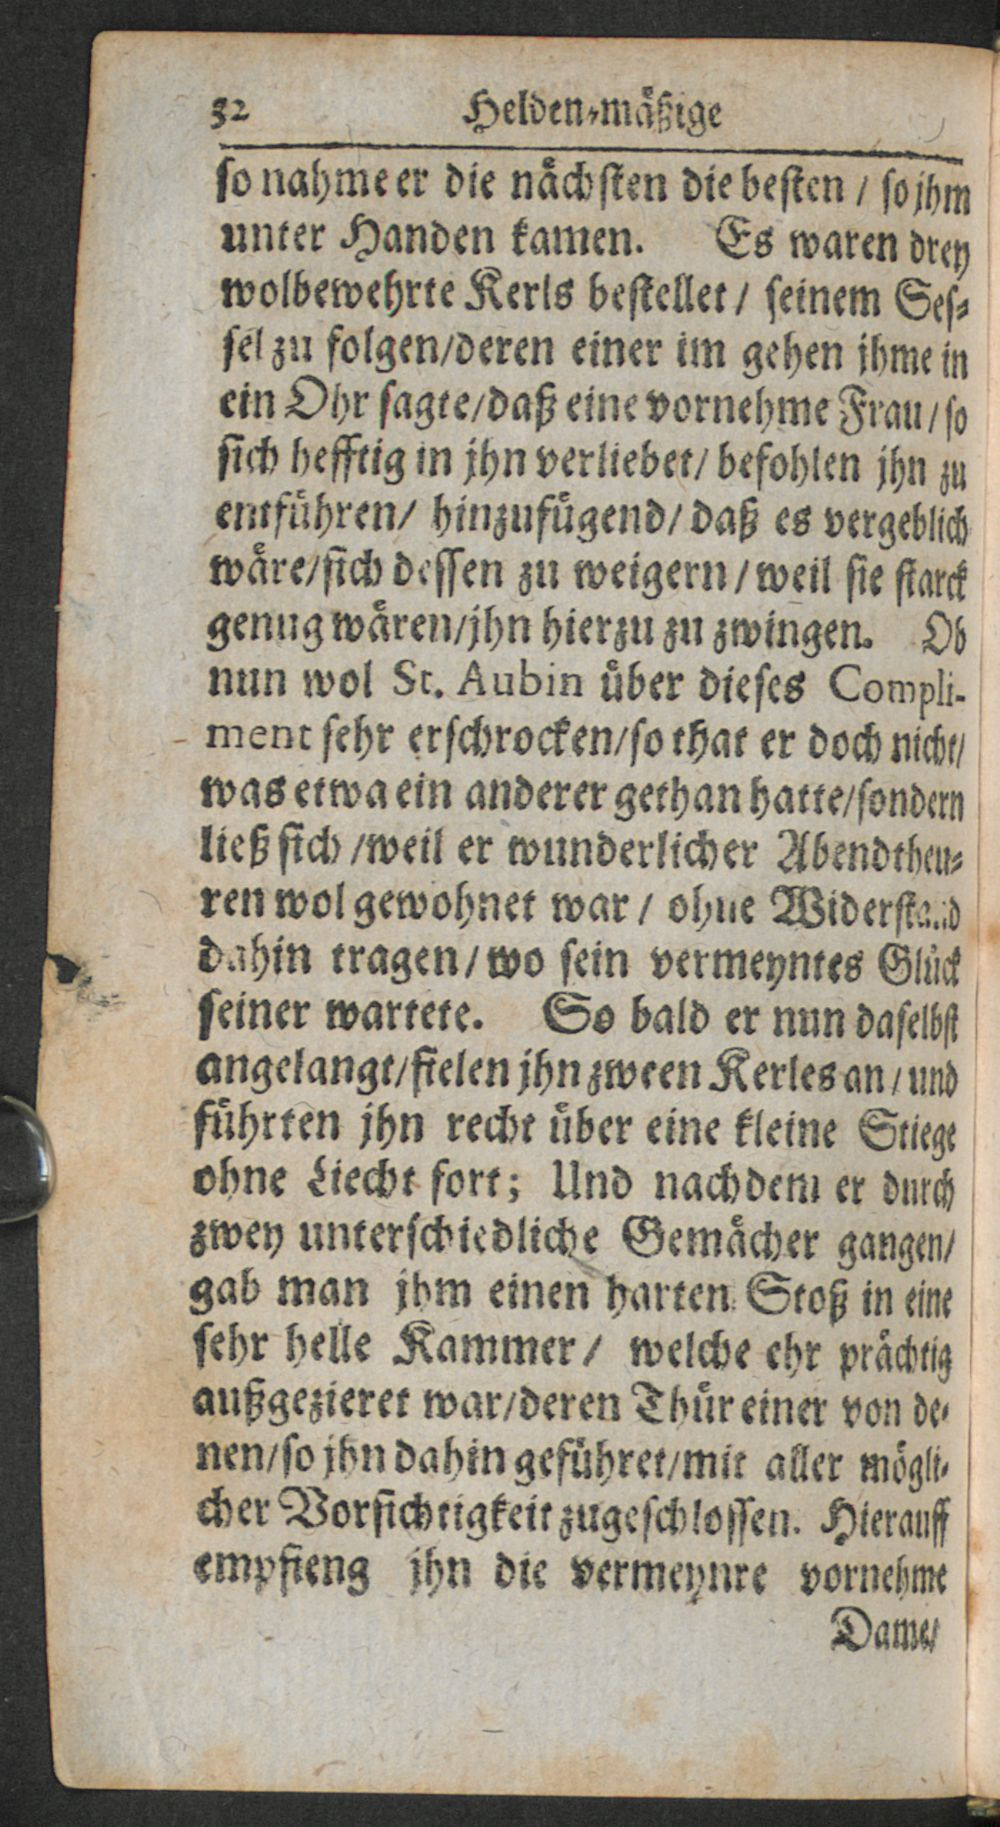 32 Helden-mäßige
so nahme er die nächsten die besten / so jhm
unter Handen kamen. Es waren drey
wolbewehrte Kerls bestellet / seinem Ses-
sel zu folgen/deren einer im gehen jhme in
ein Ohr sagte/daß eine vornehme Frau / so
sich hefftig in jhn verliebet/ befohlen jhn zu
entführen/ hinzufügend/ daß es vergeblich
wäre/sich dessen zu weigern / weil sie starck
genug wären/jhn hierzu zu zwingen. Ob
nun wol St. Aubin über dieses Compli-
ment sehr erschrocken/so that er doch nicht/
was etwa ein anderer gethan hatte/sondern
ließ sich /weil er wunderlicher Abendtheu-
ren wol gewohnet war / ohne Widerstand
dahin tragen / wo sein vermeyntes Glück
seiner wartete. So bald er nun daselbst
angelangt/fielen jhn zween Kerles an / und
führten jhn recht über eine kleine Stiege
ohne Liecht fort; Und nachdem er durch
zwey unterschiedliche Gemächer gangen/
gab man jhm einen harten Stoß in eine
sehr helle Kammer / welche ehr prächtig
außgezieret war/deren Thür einer von de-
nen/so jhn dahin geführet/mit aller mögli-
cher Vorsichtigkeit zugeschlossen. Hierauff
empfieng jhn die vermeynte vornehme
Dame/